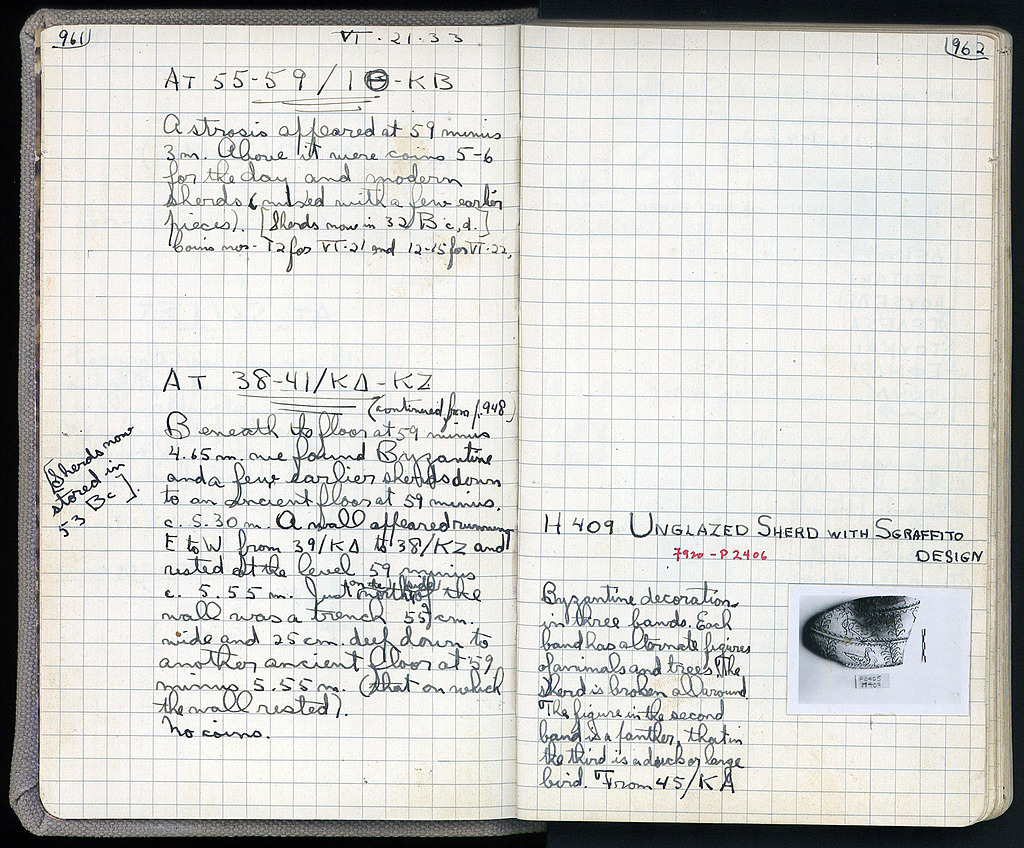 961
VI · 21 · 33
AT 55-59/1Θ-KB
A strosis appeared at 59 minus
3m. Above it were coins 5-6
for the day and modern
sherds (mixed with a few earlier
pieces). [Sherds now in 32 B c, d.]
Coins nos- 12 for VI·21 and 12-15 for VI·22,
AT 38-41/KΔ-KZ
(continued from p. 948)
Beneath the floor at 59 minus
4.65 m. we found Byzantine
and a few earlier sherds down
to an ancient floor at 59 minus.
c. 5.30 m. A wall appeared running
E to W from 39/KΔ to 38/KZ and
rested at the level 59 minus
c. 5.55 m. Just north of the
wall was a trench 55 cm.
wide and 25 cm. deep down to
another ancient floor at 59,
minus 5.55 m. (that on which
the wall rested).
No coins.
[Sherds now
stored in
53 Bc].
962
H 409 UNGLAZED SHERD WITH SGRAFFITO
DESIGN
7920 - P 2406
Byzantine decoration
in three bands. Each
band has alternate figures
of animals and trees. The
sherd is broken all around
The figure in the second
band is a panther, that in
the third is a duck or large
bird. From 45/KA
H 409